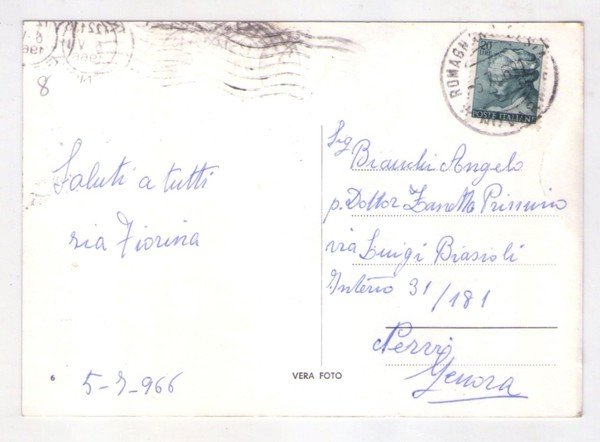 8
20
POSTE ITALIANE
ROMAGN
Saluti a tutti
zia Fiorina
5-7-966
Sig
Bianchi Angelo
p. Dottor Zanotto Primino
via Luigi Biasioli
Interno 31/181
Nervi
Genova
6
VERA FOTO